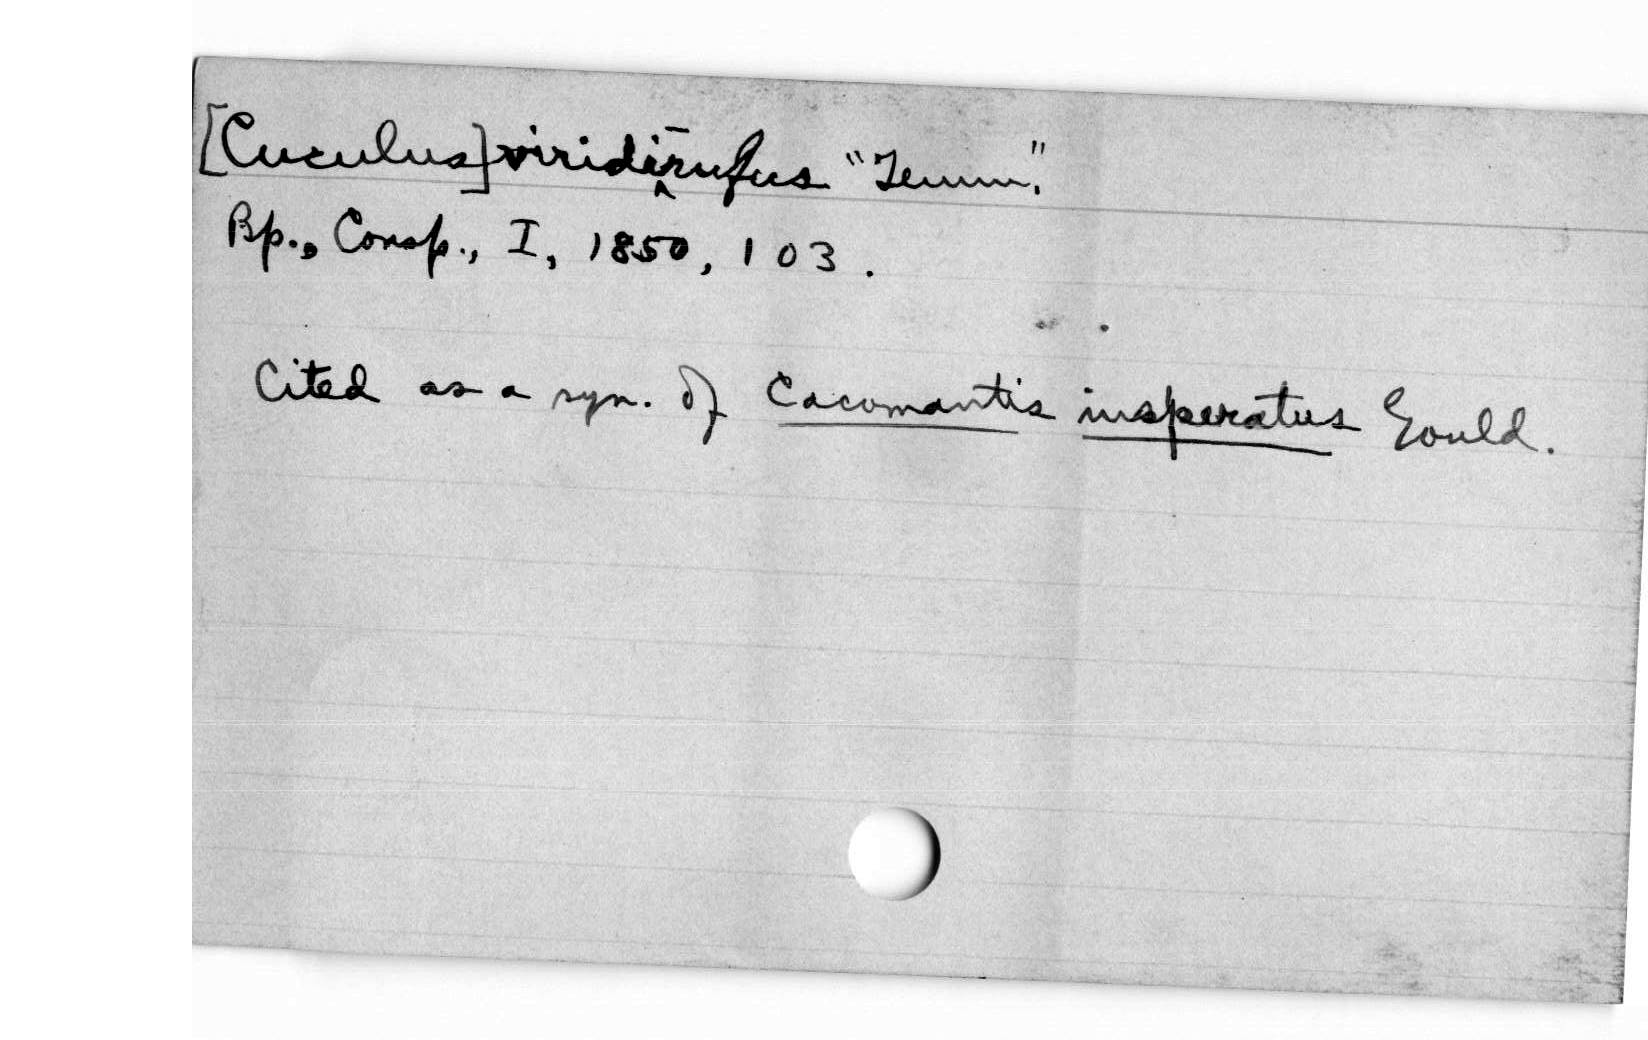 [Cuculus] viridi-rufus "Temm."
Bp., Consp., I, 1850, 103.
Cited as a syn. of Cacomantis insperatus Gould.